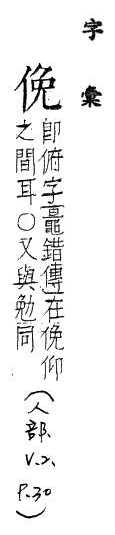 字彙
俛
即俯字鼂錯傳在俛仰
之間耳○又與勉同
(人部、V.2、P.30)